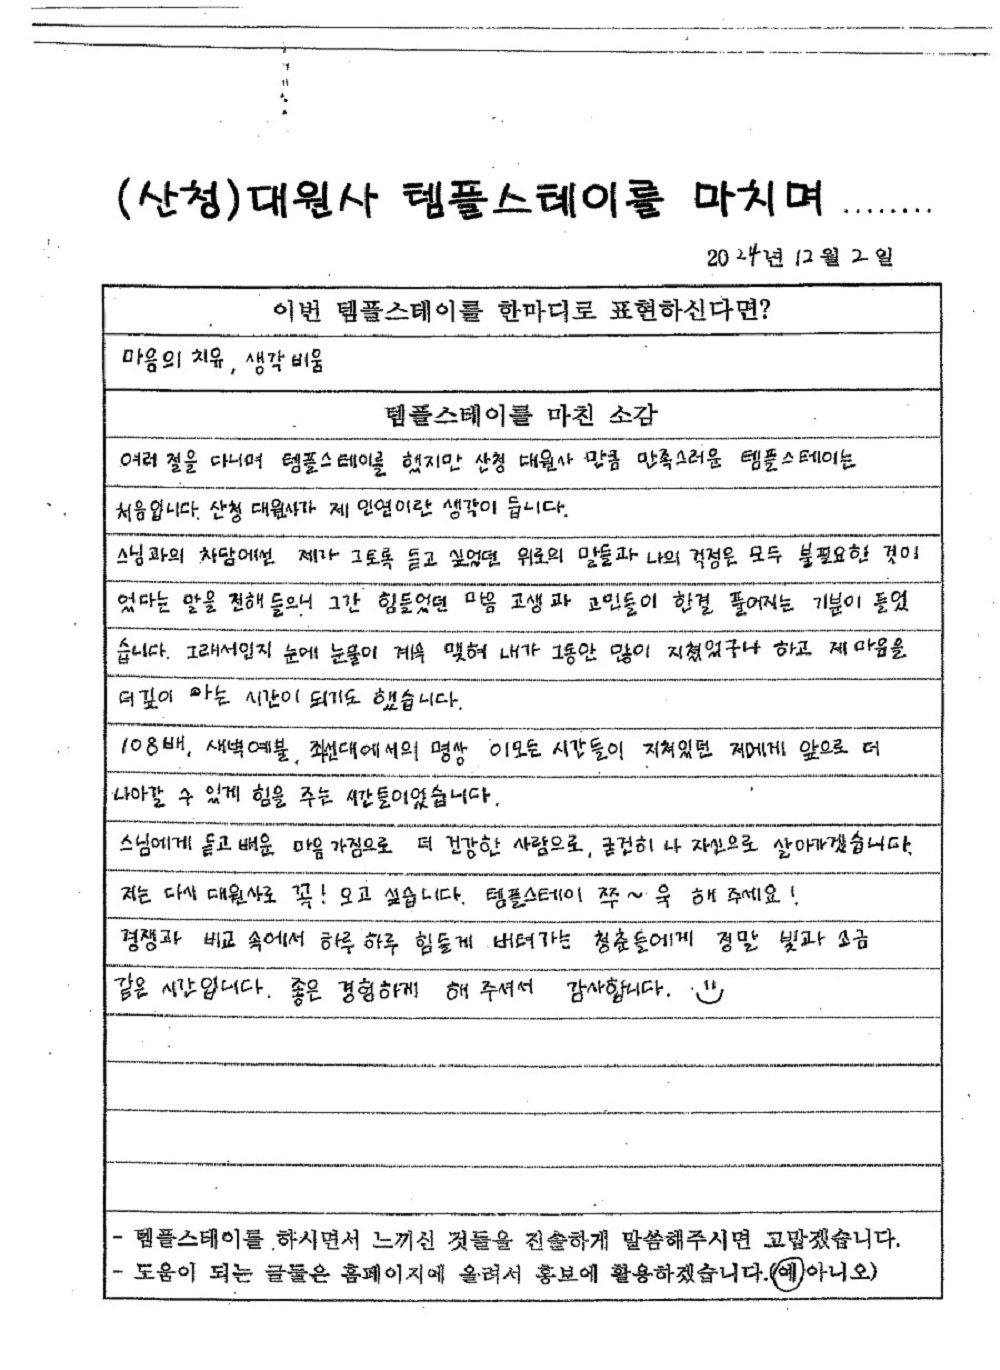 (산청)대원사 템플스테이를 마치며 ........
2024년 12월 2일
이번 템플스테이를 한마디로 표현하신다면?
마음의 치유, 생각 비움
템플스테이를 마친 소감
여러 절을 다니며 템플스테이를 했지만 산청 대원사 만큼 만족스러운 템플스테이는
처음입니다. 산청 대원사가 제 인연이란 생각이 듭니다.
스님과의 차담에선 제가 그토록 듣고 싶었던 위로의 말들과 나의 걱정은 모두 불필요한 것이
었다는 말을 전해 들으니 그간 힘들었던 마음 고생과 고민들이 한결 풀어지는 기분이 들었
습니다. 그래서인지 눈에 눈물이 계속 맺혀 내가 그동안 많이 지쳤었구나 하고 제 마음을
더 깊이 아는 시간이 되기도 했습니다.
108배, 새벽예불, 좌선대에서의 명상 이모든 시간들이 지쳐있던 저에게 앞으로 더
나아갈 수 있게 힘을 주는 시간들이었습니다.
스님에게 듣고 배운 마음 가짐으로 더 건강한 사람으로, 굳건히 나 자신으로 살아가겠습니다.
저는 다시 대원사로 꼭! 오고 싶습니다. 템플스테이 쭈~욱 해 주세요!
경쟁과 비교 속에서 하루 하루 힘들게 버텨가는 청춘들에게 정말 빛과 소금
같은 시간입니다. 좋은 경험하게 해 주셔서 감사합니다.
- 템플스테이를 하시면서 느끼신 것들을 진솔하게 말씀해주시면 고맙겠습니다.
- 도움이 되는 글들은 홈페이지에 올려서 홍보에 활용하겠습니다.(예/아니오)